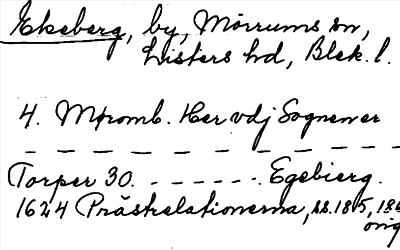 Ekeberg, by, Mörrums sn,
Listers hd, Blek. l.
4. Mtromb. Her vdj Sognener
— — — — — — — — — —
Torper 30. - - - - - - - Egebierg.
1624 Prästrelationerna, ss. 1815, 186
orig